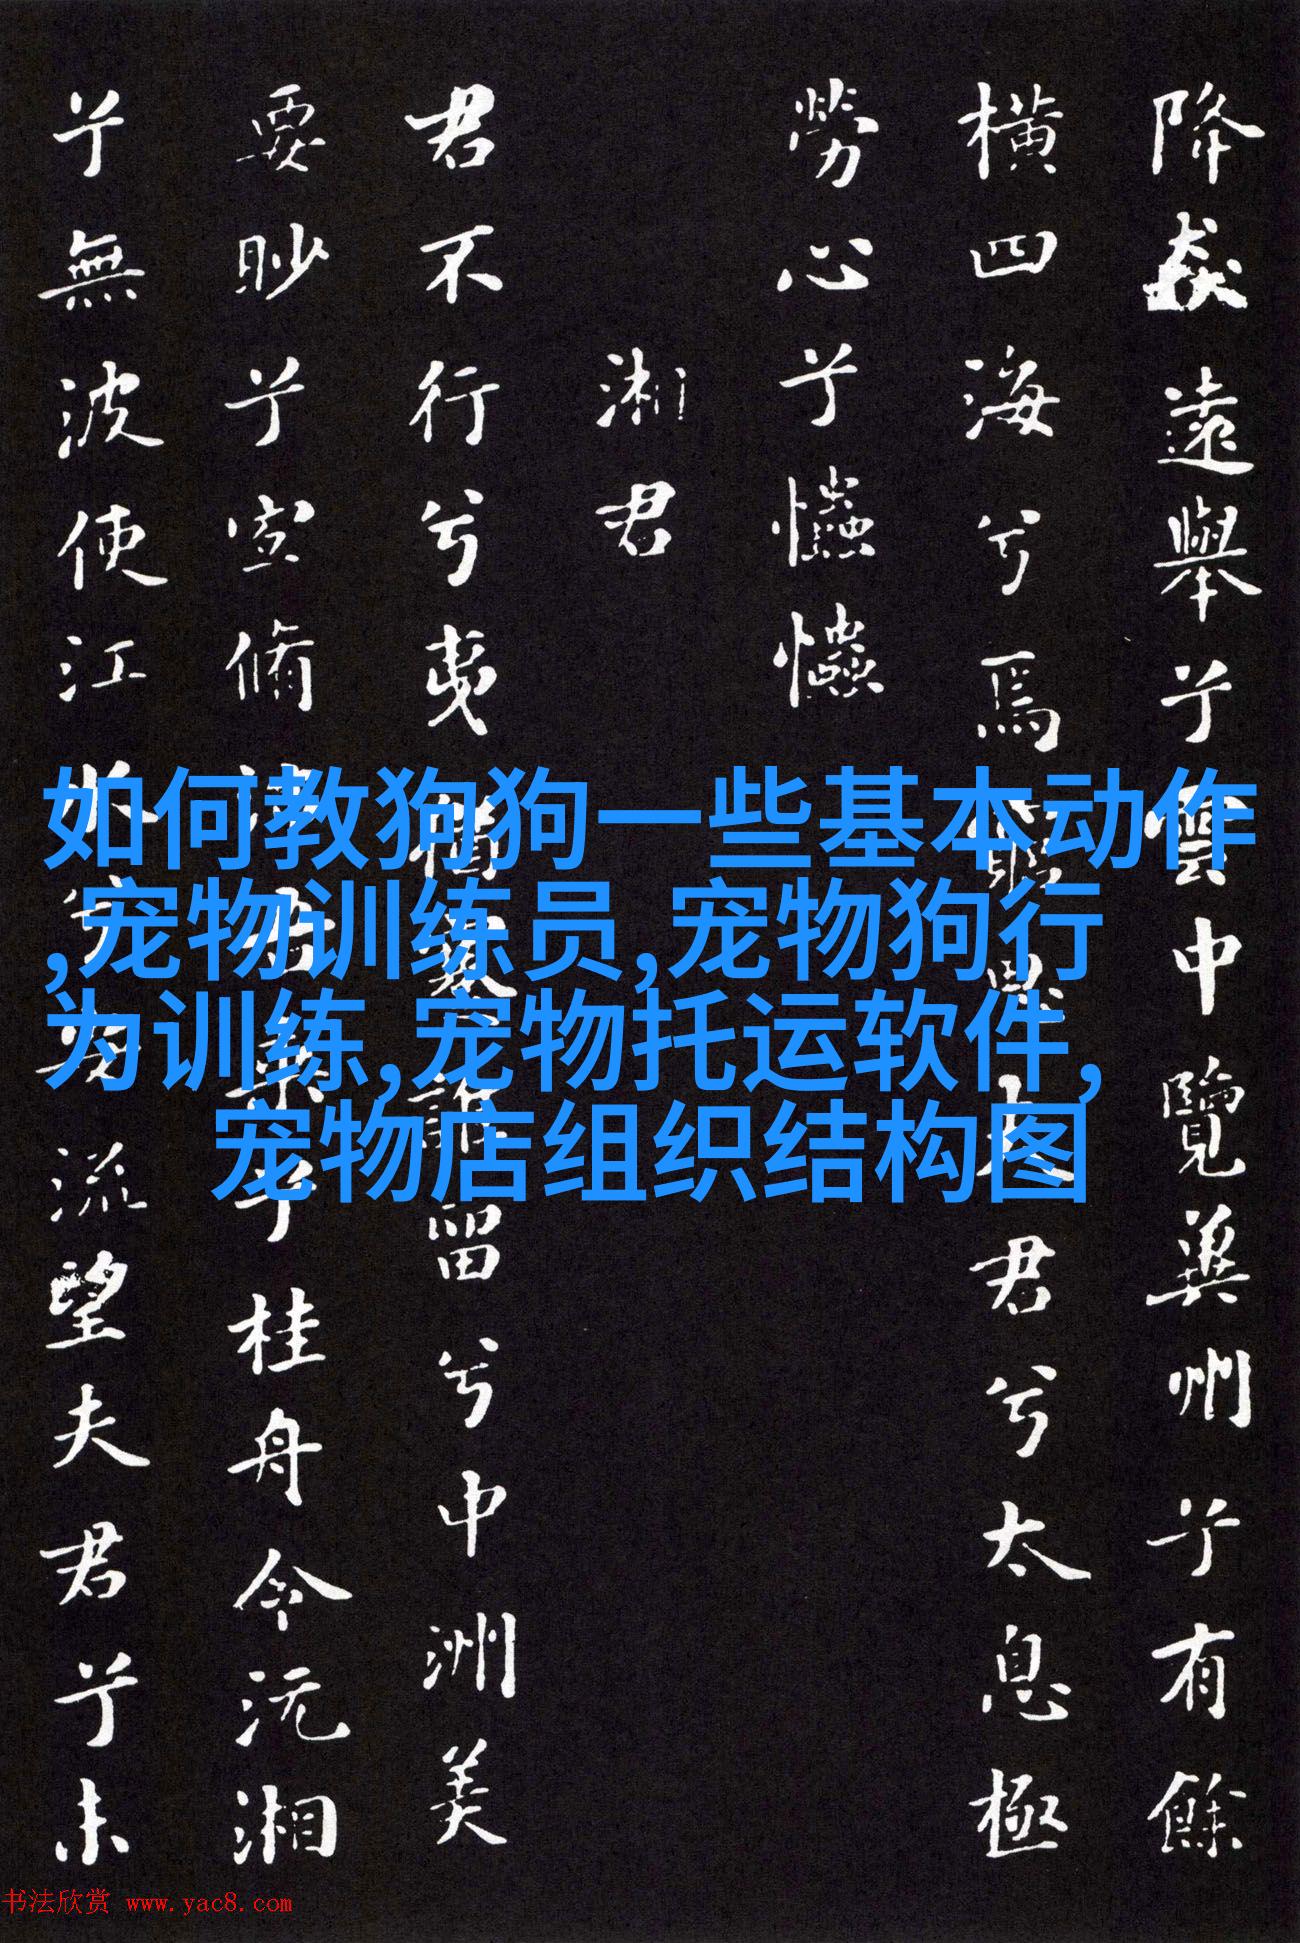 降猋遠舉兮雲中覽冀州兮有餘
橫四海兮焉窮思夫君兮太息極
勞心兮
湘君
君不行兮夷猶蹇誰留兮中洲美
要眇兮宜脩沛吾乘兮桂舟令沅湘
兮無波使江水兮安流望夫君兮未
如何教狗狗一些基本动作
,宠物训练员,宠物狗行
为训练,宠物托运软件,
宠物店组织结构图
书法欣赏 www.yac8.com